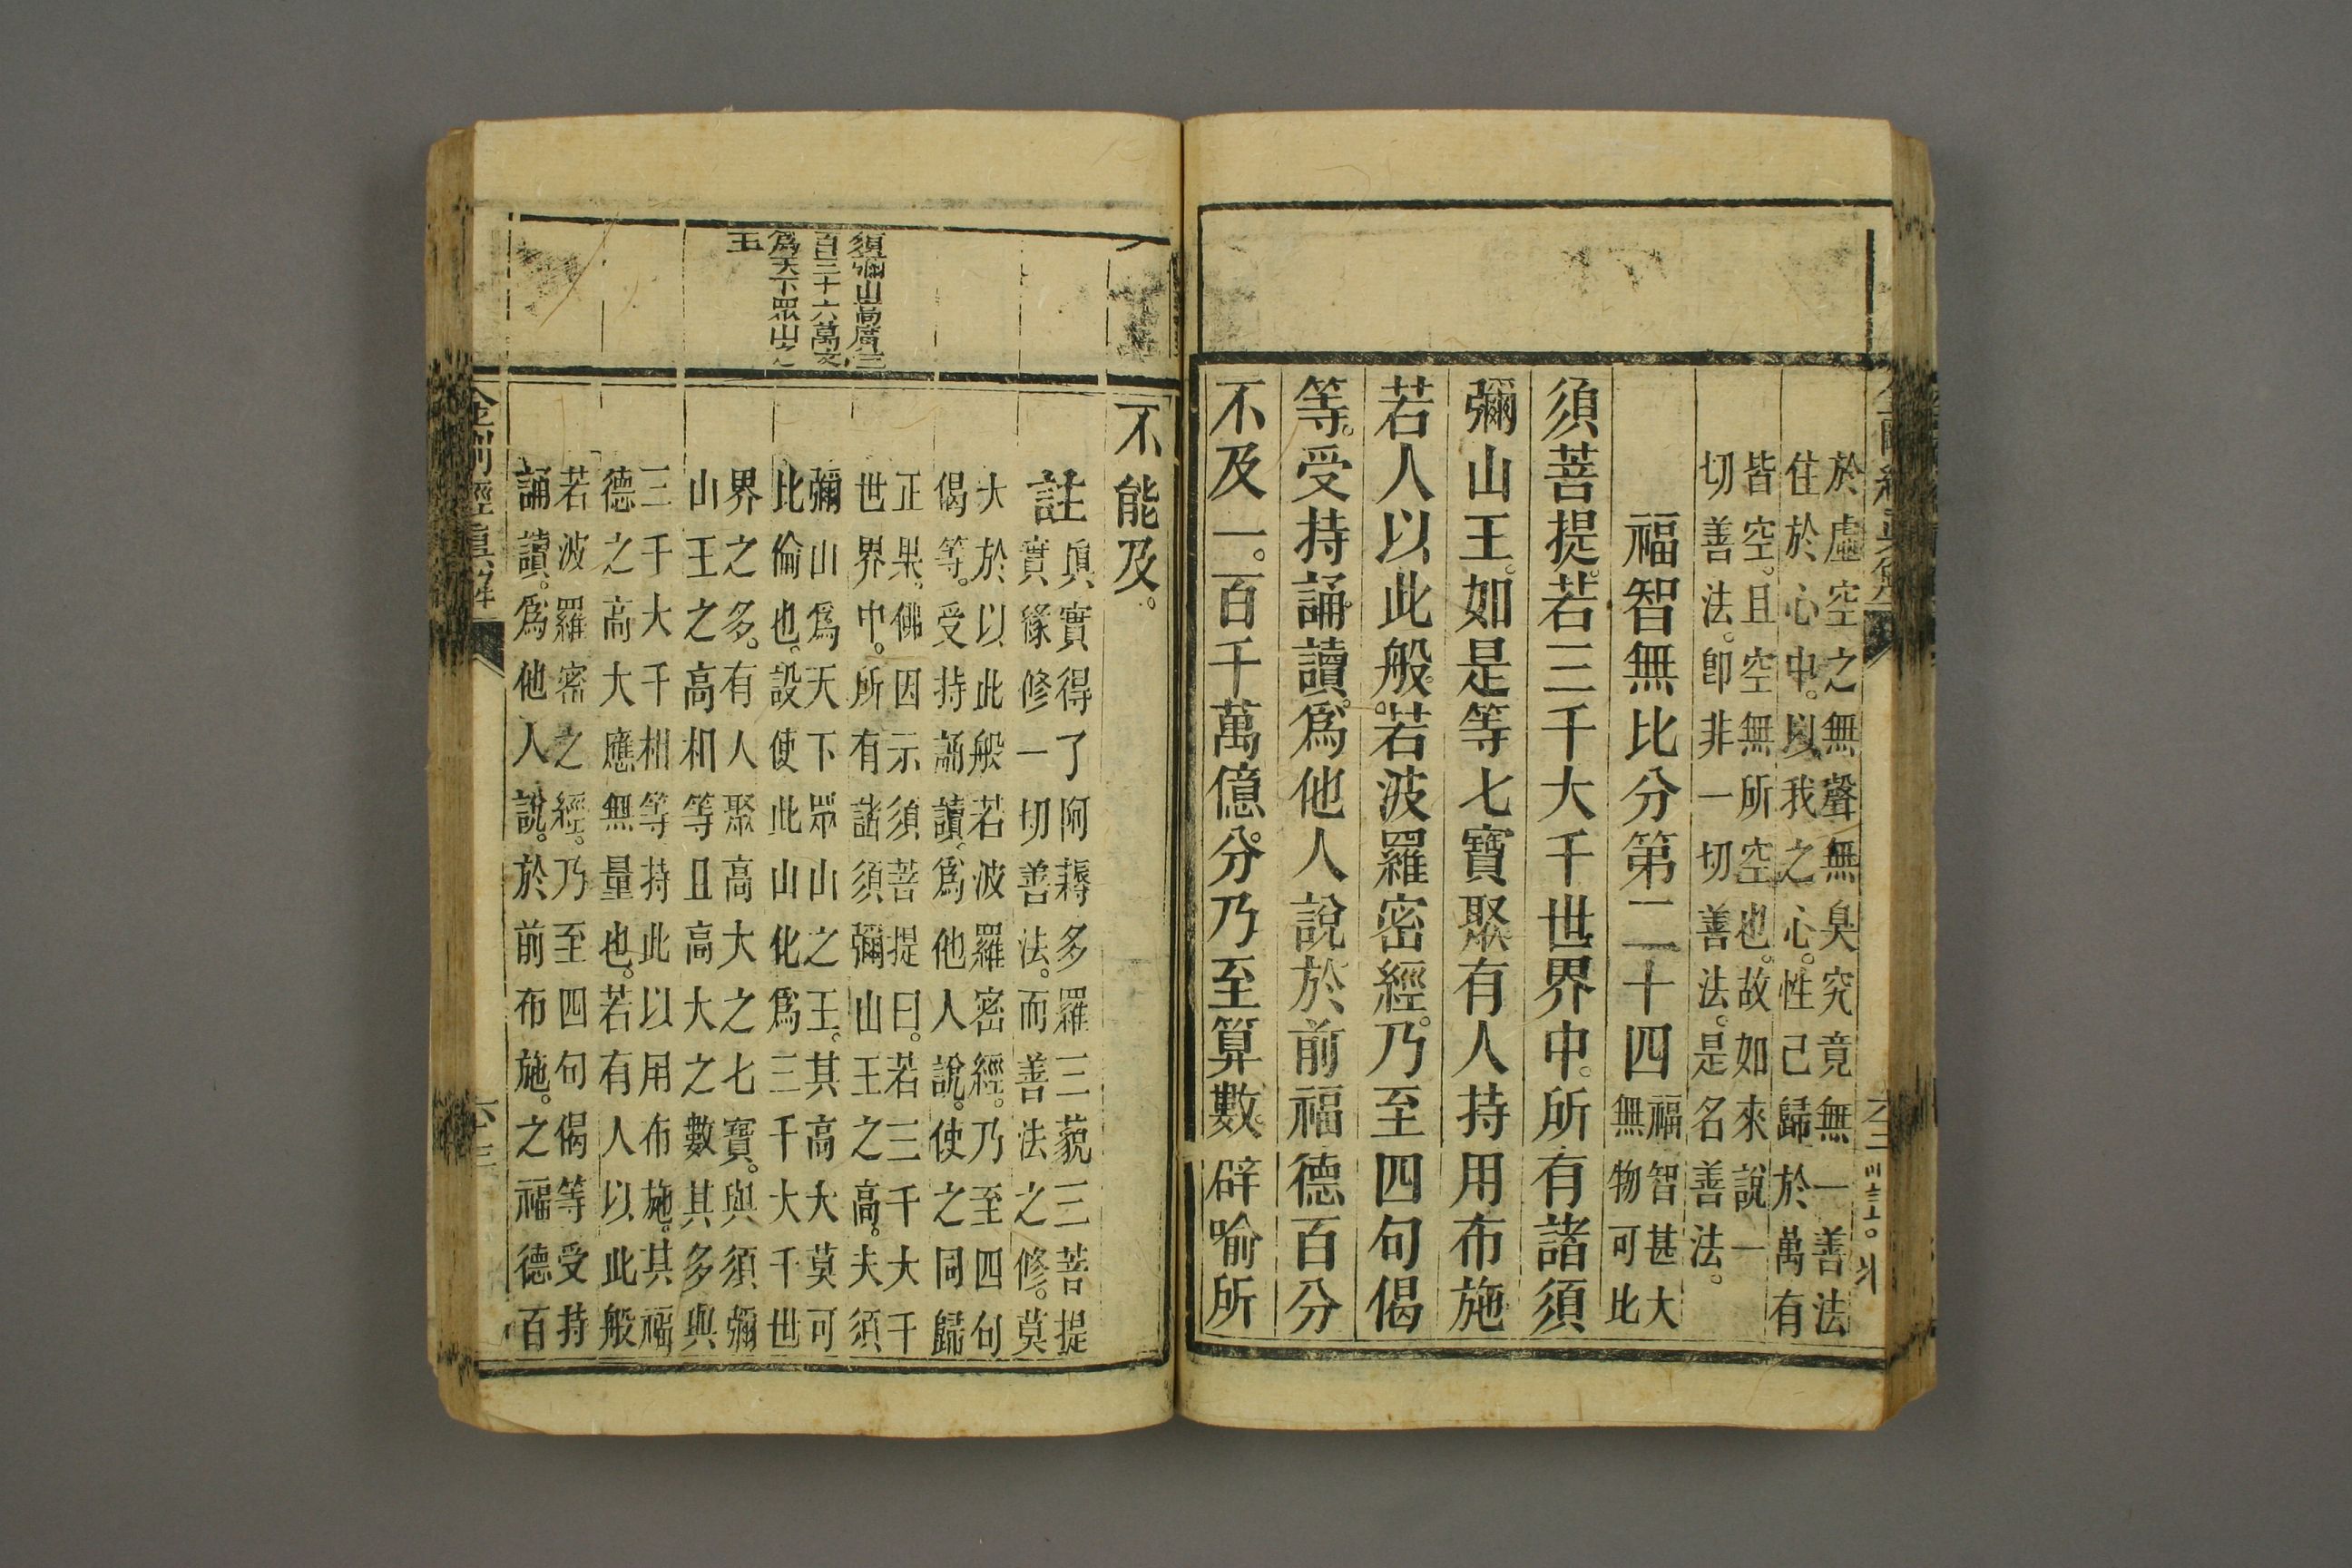 於虛空之無聲無臭究竟無一善法
住於心中。以我之心。性己歸於萬有
皆空。且空無所空也。故如來說一
切善法。卽非一切善法。是名善法。
福智無比分第二十四
福智甚大
無物可比
須菩提。若三千大千世界中。所有諸須
彌山王。如是等七寶聚有人持用布施
若人以此般。若波羅密經。乃至四句偈
等。受持誦讀。爲他人說於前福德百分
不及一。百千萬億分。乃至算數。辟喻所
不能及。
註
眞實得了阿耨多羅三藐三菩提
實緣修一切善法。而善法之修。莫
大於以此般若波羅密經。乃至四句
偈等。受持誦讀。爲他人說。使之同歸
正果。佛因示須菩提曰。若三千大千
世界中。所有諸須彌山王之高。夫須
彌山爲天下眾山之王。其高大莫可
比倫也。設使此山化爲三千大千世
界之多。有人聚高大之七寶。與須彌
山王之高相等且高大之數其多與
三千大千相等持此以用布施。其福
德之高大應無量也。若有人以此般
若波羅密之經。乃至四句偈等受持
誦讀。爲他人說。於前布施。之福德百
須彌山高廣三
百三十六萬丈
爲天下眾山之
王
金剛經眞解
六十三